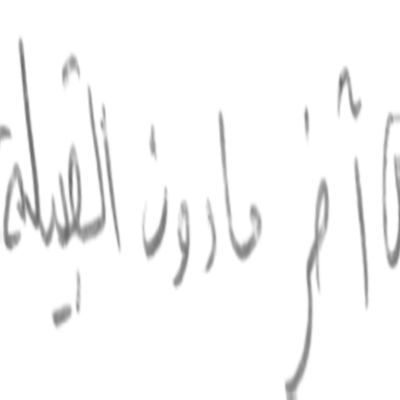 آخر مادون القبيلة